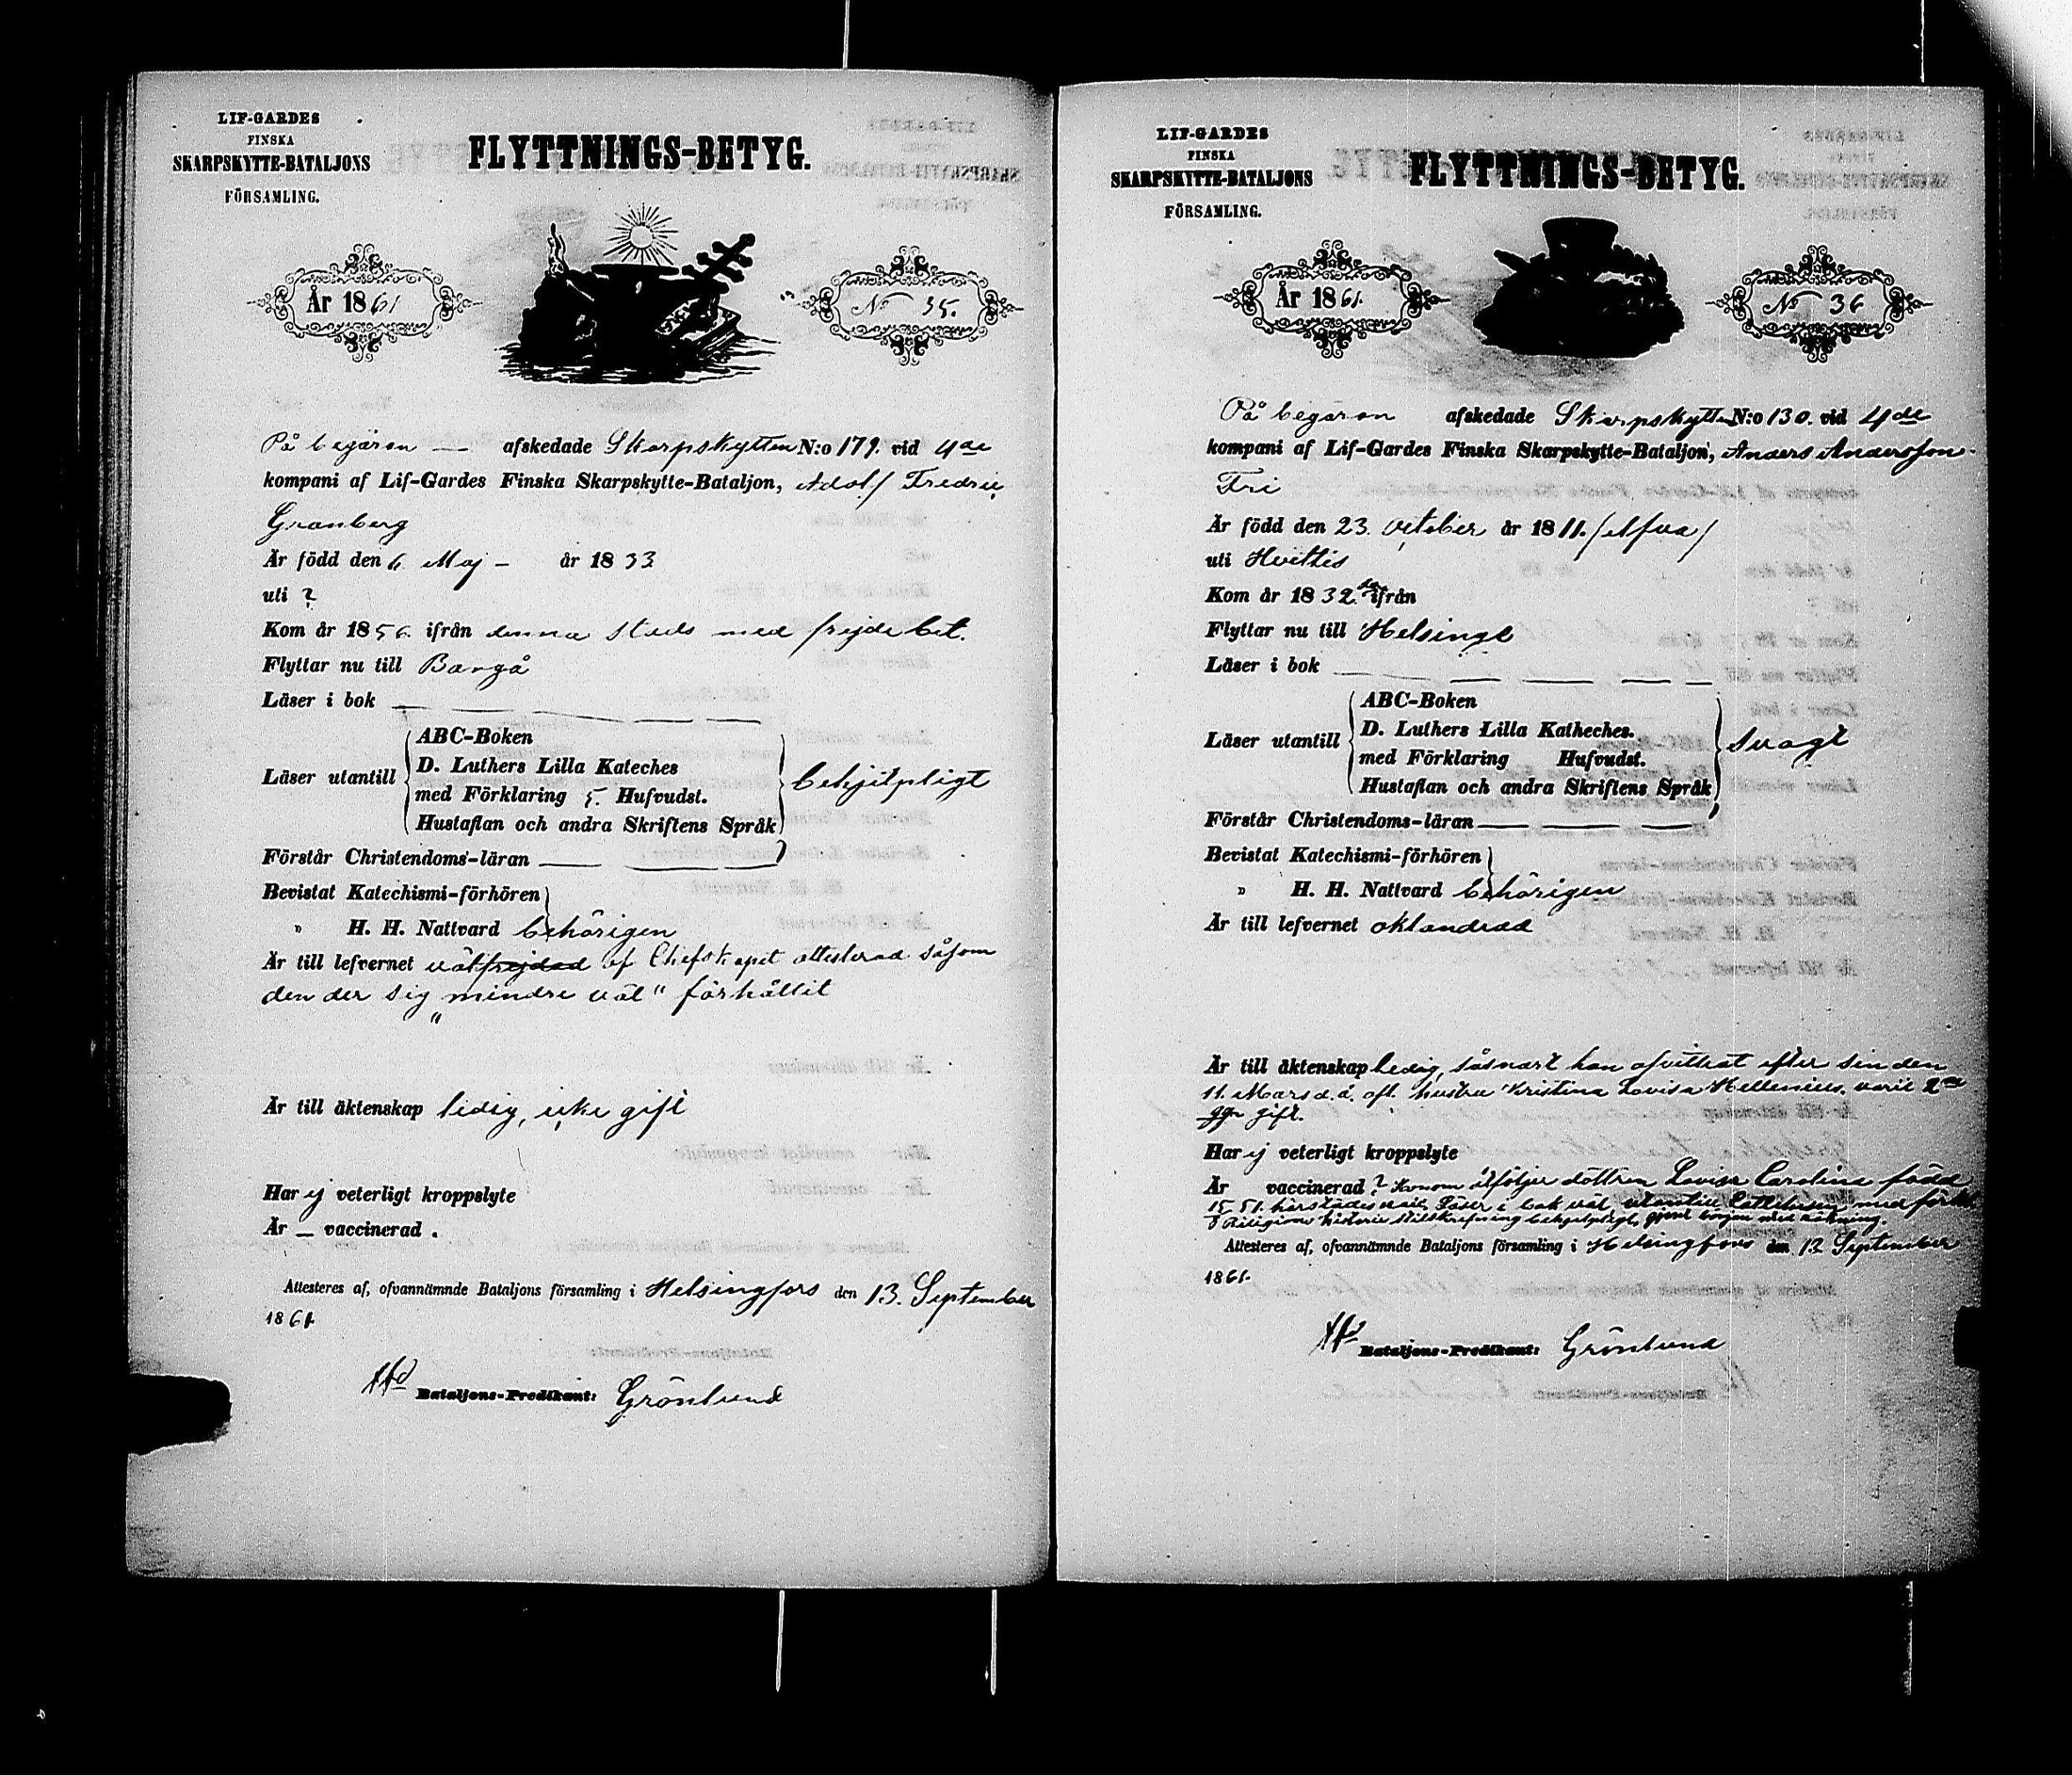 LIF-GARDES
FINSKA
SKARPSKYTTE-BATALJONS
FÖRSAMLING.
FLYTTNINGS-BETYG.
År 1861
No 35.
På begäran — afskedade Skarpskytten N:o 179. vid 4de
kompani af Lif-Gardes Finska Skarpskytte-Bataljon, Adolf Fredric
Granberg
Är född den 6 Maj – år 1833
uti ?
Kom år 1856. ifrån denna stads med frejdebet.
Flyttar nu till Borgå
Läser i bok
Läser utantill
ABC-Boken
D. Luthers Lilla Kateches
med Förklaring 5. Hufvudst.
Hustaflan och andra Skriftens Språk
behjelpligt
Förstår Christendoms-läran
Bevistat Katechismi-förhören
" H. H. Nattvard behörigen
Är till lefvernet välfrejdad af Chefskapet attesterad såsom
den der sig "mindre väl" förhållit
Är till äktenskap ledig, icke gift
Har ej veterligt kroppslyte
Är – vaccinerad .
Attesteres af, ofvannämnde Bataljons församling i Helsingfors den 13. September
1861.
Bataljons-Predikant: Grönlund
LIF-GARDES
FINSKA
SKARPSKYTTE-BATALJONS
FÖRSAMLING.
FLYTTNINGS-BETYG.
År 1861.
No 36
På begäran afskedade Skarpskytten N:o 130. vid 4de
kompani af Lif-Gardes Finska Skarpskytte-Bataljon, Anders Andersson
Fri
Är född den 23. october år 1811. /elfva/
uti Hvittis
Kom år 1832. ifrån
Flyttar nu till Helsinge
Läser i bok
Läser utantill
ABC-Boken
D. Luthers Lilla Katheches.
med Förklaring Hufvudst.
Hustaflan och andra Skriftens Språk
svagt
Förstår Christendoms-läran
Bevistat Katechismi-förhören
" H. H. Nattvard behörigen
Är till lefvernet oklandrad
Är till äktenskap ledig, såsnart han afvittrat efter sin den
11. Mars d. å. afl. hustru Kristina Lovisa Hellenius. varit 2
ggr gift.
Har ej veterligt kroppslyte
Är vaccinerad ? Honom åtföljer dottren Lovisa Carolina född
härstädes Läser i bok väl utantill Cathekesen med förkl.
Religions historie behjelpligt,
Attesteres af, ofvannämnde Bataljons församling i Helsingfors den 13 September
1861.
Bataljons-Predikant: Grönlund